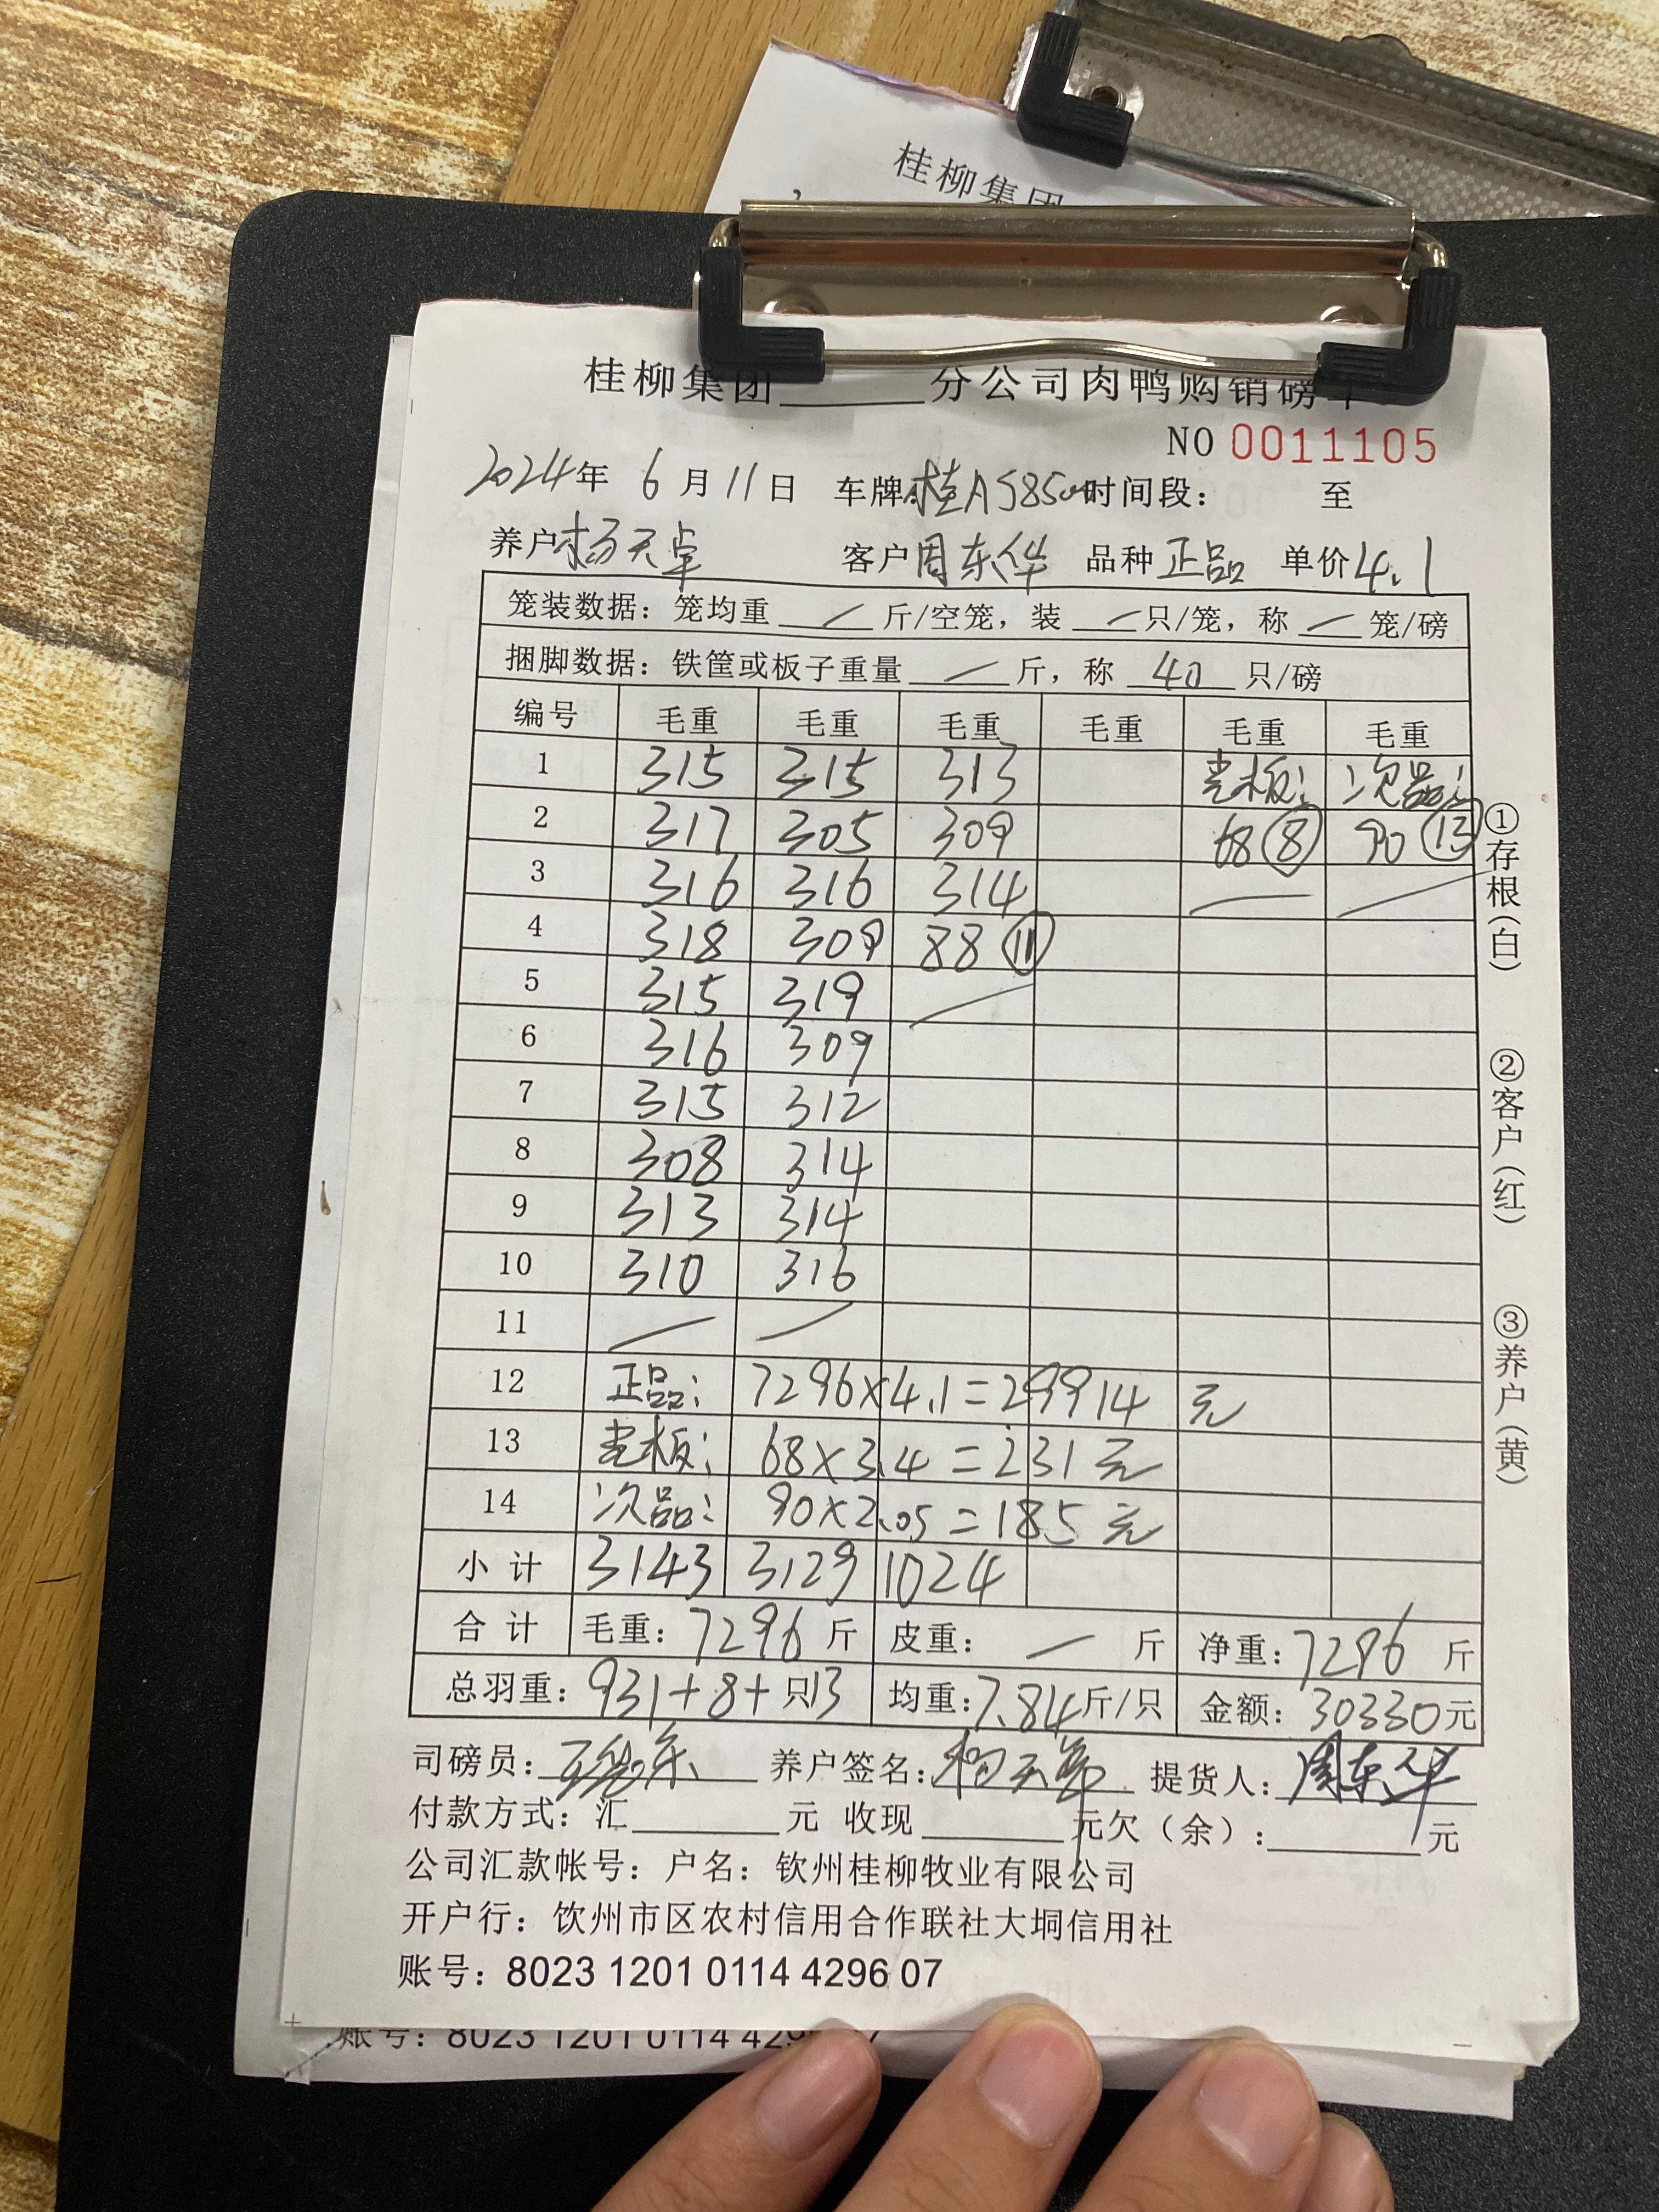 桂柳集团
桂柳集团______分公司肉鸭购销磅单
NO 0011105
2024年 6月11日 车牌:桂A585 时间段: 至
养户 杨天卓 客户 周东华 品种 正品 单价 4.1
笼装数据：笼均重 / 斤/空笼，装 / 只/笼，称 / 笼/磅
捆脚数据：铁筐或板子重量 / 斤，称 40 只/磅
编号 毛重 毛重 毛重 毛重 毛重 毛重
1 315 315 313 壳板: 次品:
2 317 305 309 68 ⑧ 90 ⑬
3 316 316 314 / /
4 318 309 88 ⑪
5 315 319 /
6 316 309
7 315 312
8 308 314
9 313 314
10 310 316
11 / /
12 正品: 7296×4.1=29914 元
13 壳板: 68×3.4=231元
14 次品: 90×2.05=185元
小计 3143 3129 1024
合计 毛重: 7296 斤 皮重: / 斤 净重: 7296 斤
总羽重: 931+8+只13 均重: 7.84斤/只 金额: 30330元
①存根(白) ②客户(红) ③养户(黄)
司磅员: 养户签名: 杨天卓 提货人: 周东华
付款方式：汇______元 收现______元欠（余）:______元
公司汇款帐号：户名：钦州桂柳牧业有限公司
开户行：饮州市区农村信用合作联社大垌信用社
账号：8023 1201 0114 4296 07
账号：8023 1201 0114 429 7